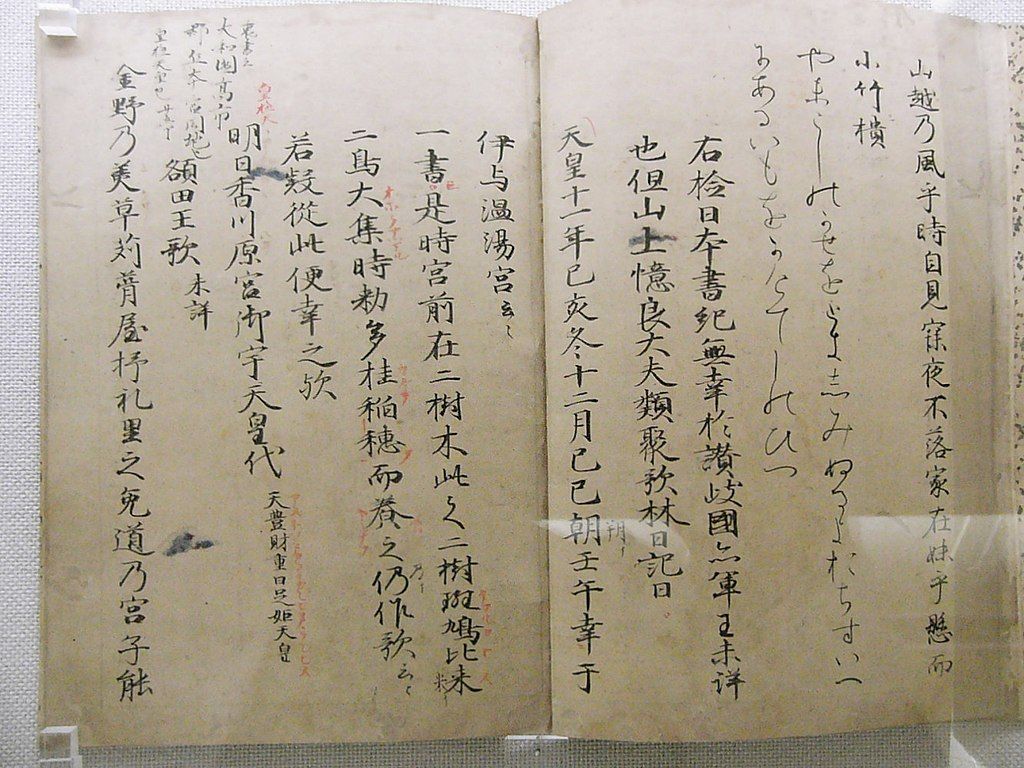 山越乃風乎時自見寐夜不落家在妹乎懸而
小竹樻
やまこしのかせをときしみぬるよおちすいへ
にあるいもをかけてしのひつ
右檢日本書紀無幸於讃岐國亦軍王未詳
也但山上憶良大夫類聚歌林曰記曰
天皇十一年己亥冬十二月己巳朝壬午幸于
朔
伊与温湯宮云々
一書是時宮前在二樹木此之二樹斑鳩比未
米
二鳥大集時勅多挂稲穂而養之仍作歌云々
若疑從此便幸之歟
皇極天
明日香川原宮御宇天皇代 天豊財重日足姫天皇
大和國高市
皇極天皇也
額田王歌 未詳
金野乃美草苅葺屋杼礼里之兎道乃宮子能